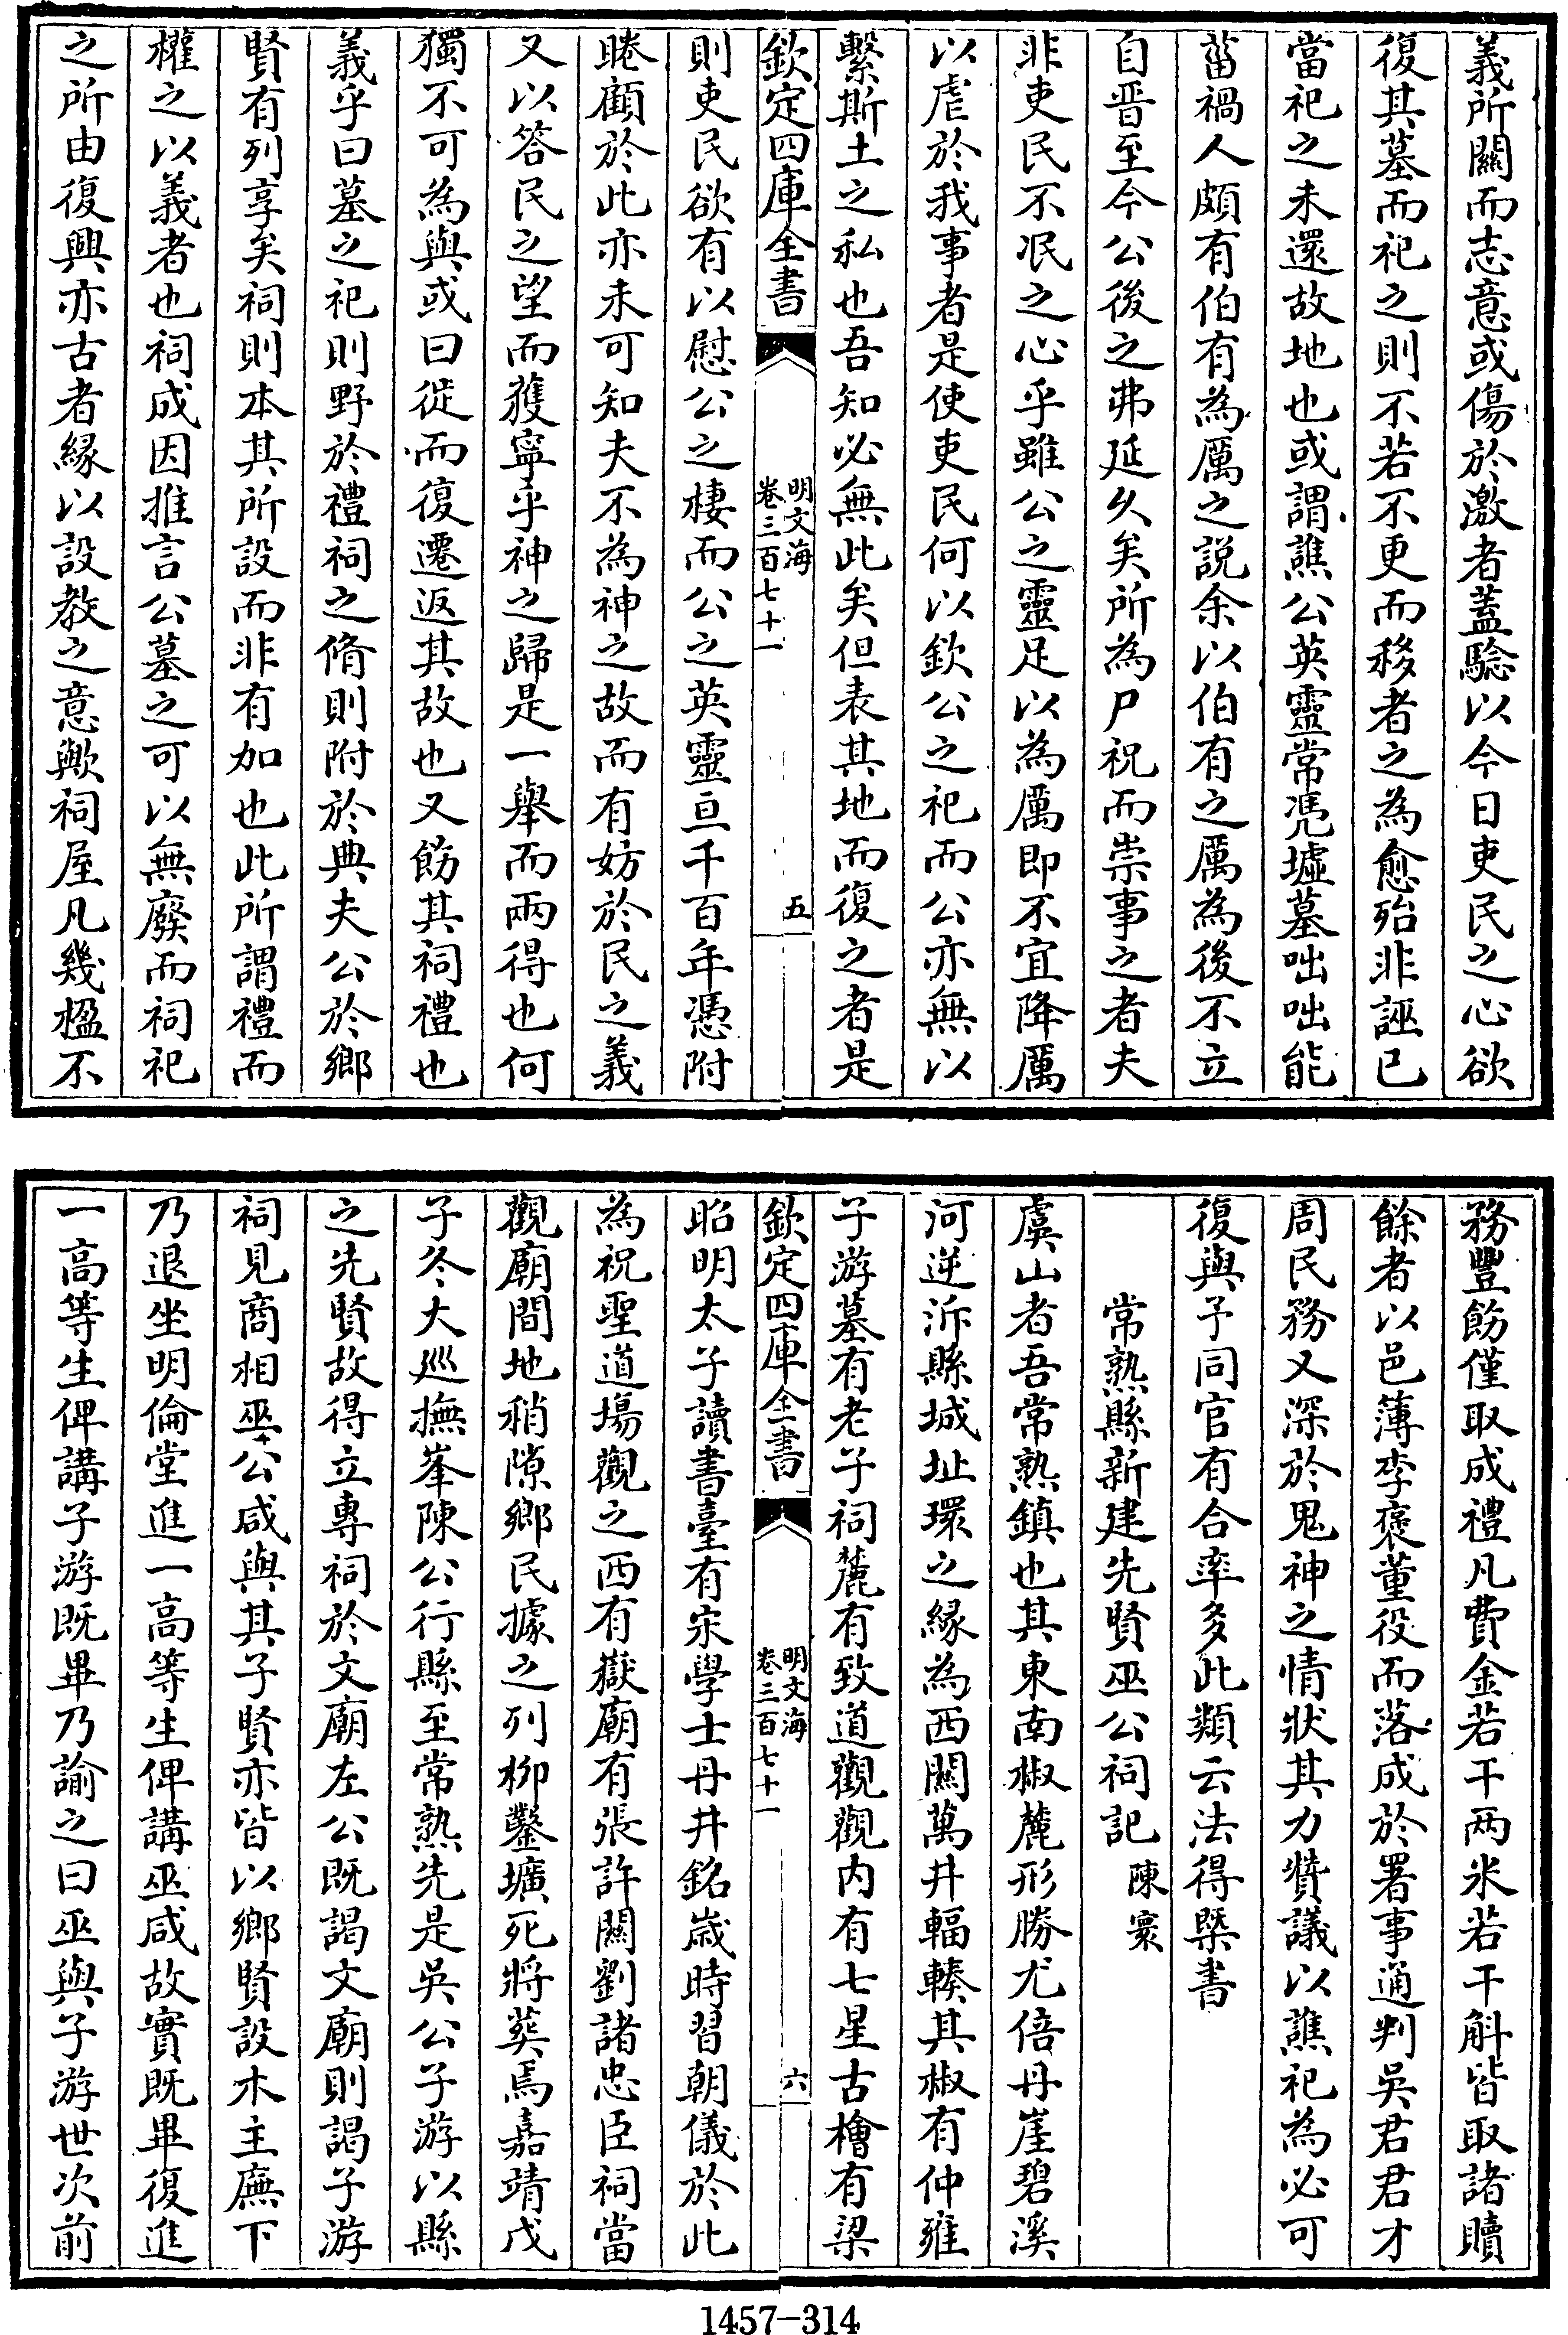 義所關而志意或傷於激者蓋騐以今日吏民之心欲
復其墓而祀之則不若不更而移者之為愈殆非誣已
當祀之未還故地也或謂譙公英靈常凴墟墓咄咄能
菑禍人頗有伯有為厲之説余以伯有之厲為後不立
自晋至今公後之弗延久矣所為尸祝而崇事之者夫
非吏民不泯之心乎雖公之靈足以為厲即不宜降厲
以虐於我事者是使吏民何以欽公之祀而公亦無以
繫斯土之私也吾知必無此矣但表其地而復之者是
欽定四庫全書
明文海
卷三百七十一
五
則吏民欲有以慰公之棲而公之英靈亘千百年憑附
睠顧於此亦未可知夫不為神之故而有妨於民之義
又以答民之望而獲寧乎神之歸是一舉而兩得也何
獨不可為與或曰從而復遷返其故也又飭其祠禮也
義乎曰墓之祀則野於禮祠之脩則附於典夫公於鄉
賢有列享矣祠則本其所設而非有加也此所謂禮而
權之以義者也祠成因推言公墓之可以無廢而祠祀
之所由復興亦古者緣以設教之意歟祠屋凡幾楹不
務豐飭僅取成禮凡費金若干两米若干斛皆取諸贖
餘者以邑薄李褒董役而落成於署事通判吳君君才
周民務又深於鬼神之情狀其力贊議以譙祀為必可
復與予同官有合率多此類云法得槩書
常熟縣新建先賢巫公祠記 陳寰
虞山者吾常熟鎮也其東南椒麓形勝尤倍丹崖碧溪
河逆泝縣城址環之緣為西關萬井輻輳其椒有仲雍
子游墓有老子祠麓有致道觀觀内有七星古檜有梁
欽定四庫全書
明文海
卷三百七十一
六
昭明太子讀書臺有宋學士丹井銘歲時習朝儀於此
為祝聖道場觀之西有嶽廟有張許關劉諸忠臣祠當
觀廟間地稍隙鄉民據之列栁鑿壙死將葬焉嘉靖戊
子冬大巡撫峯陳公行縣至常熟先是吳公子游以縣
之先賢故得立專祠於文廟左公既謁文廟則謁子游
祠見商相巫公咸與其子賢亦皆以鄉賢設木主廡下
乃退坐明倫堂進一高等生俾講巫咸故實既畢復進
一高等生俾講子游既畢乃諭之曰巫與子游世次前
1457-314